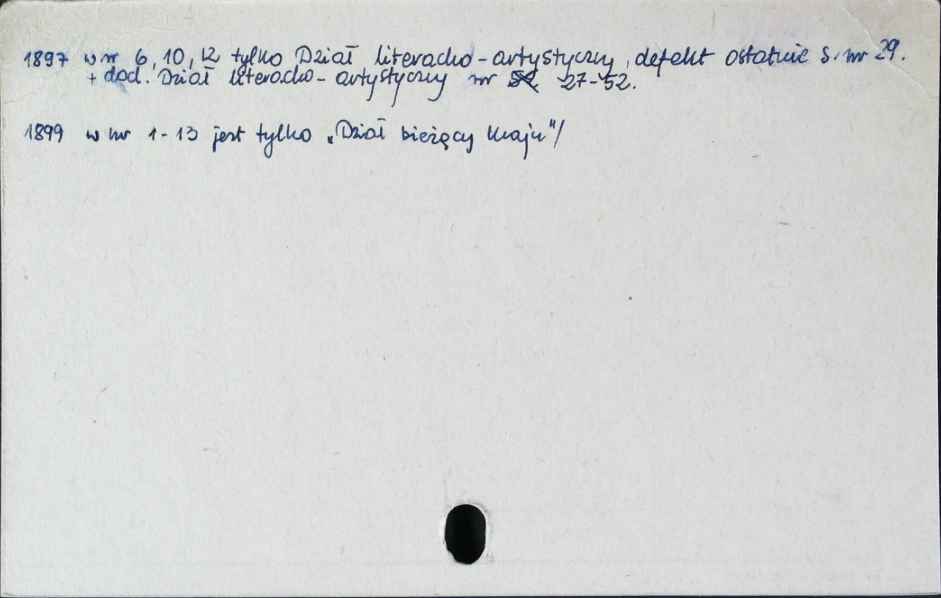 1897 w nr 6, 10, 12 tylko Dział literacko-artystyczny, defekt ostatnie s. nr 29.
+ dod. Dział literacko-artystyczny nr 27-52.
1899 w nr 1-13 jest tylko „Dział bieżący kraju"/